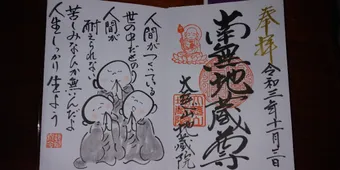 奉拝
令和三年十一月三日
南無地蔵尊
地蔵院
人間がつくっている
世の中だもの
人間が
耐えられない
苦しみなんか無いんだよ
人生しっかり生よう